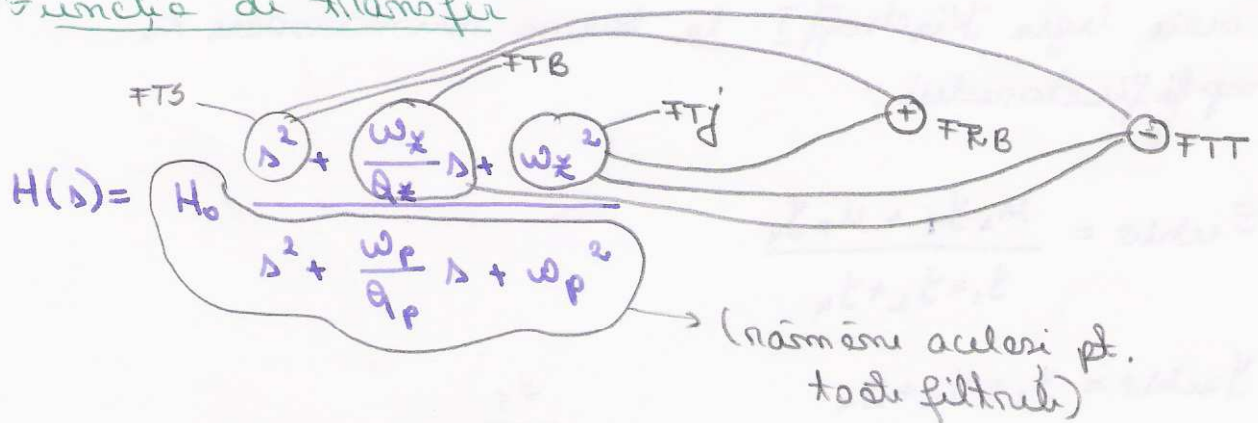 Funcția de transfer
FTS FTB FTJ + FRB - FTT
H(s) = H₀ (s² + (ω_z/Q_z) s + ω_z²) / (s² + (ω_p/Q_p) s + ω_p²)
(rămâne același pt.
toate filtrele)